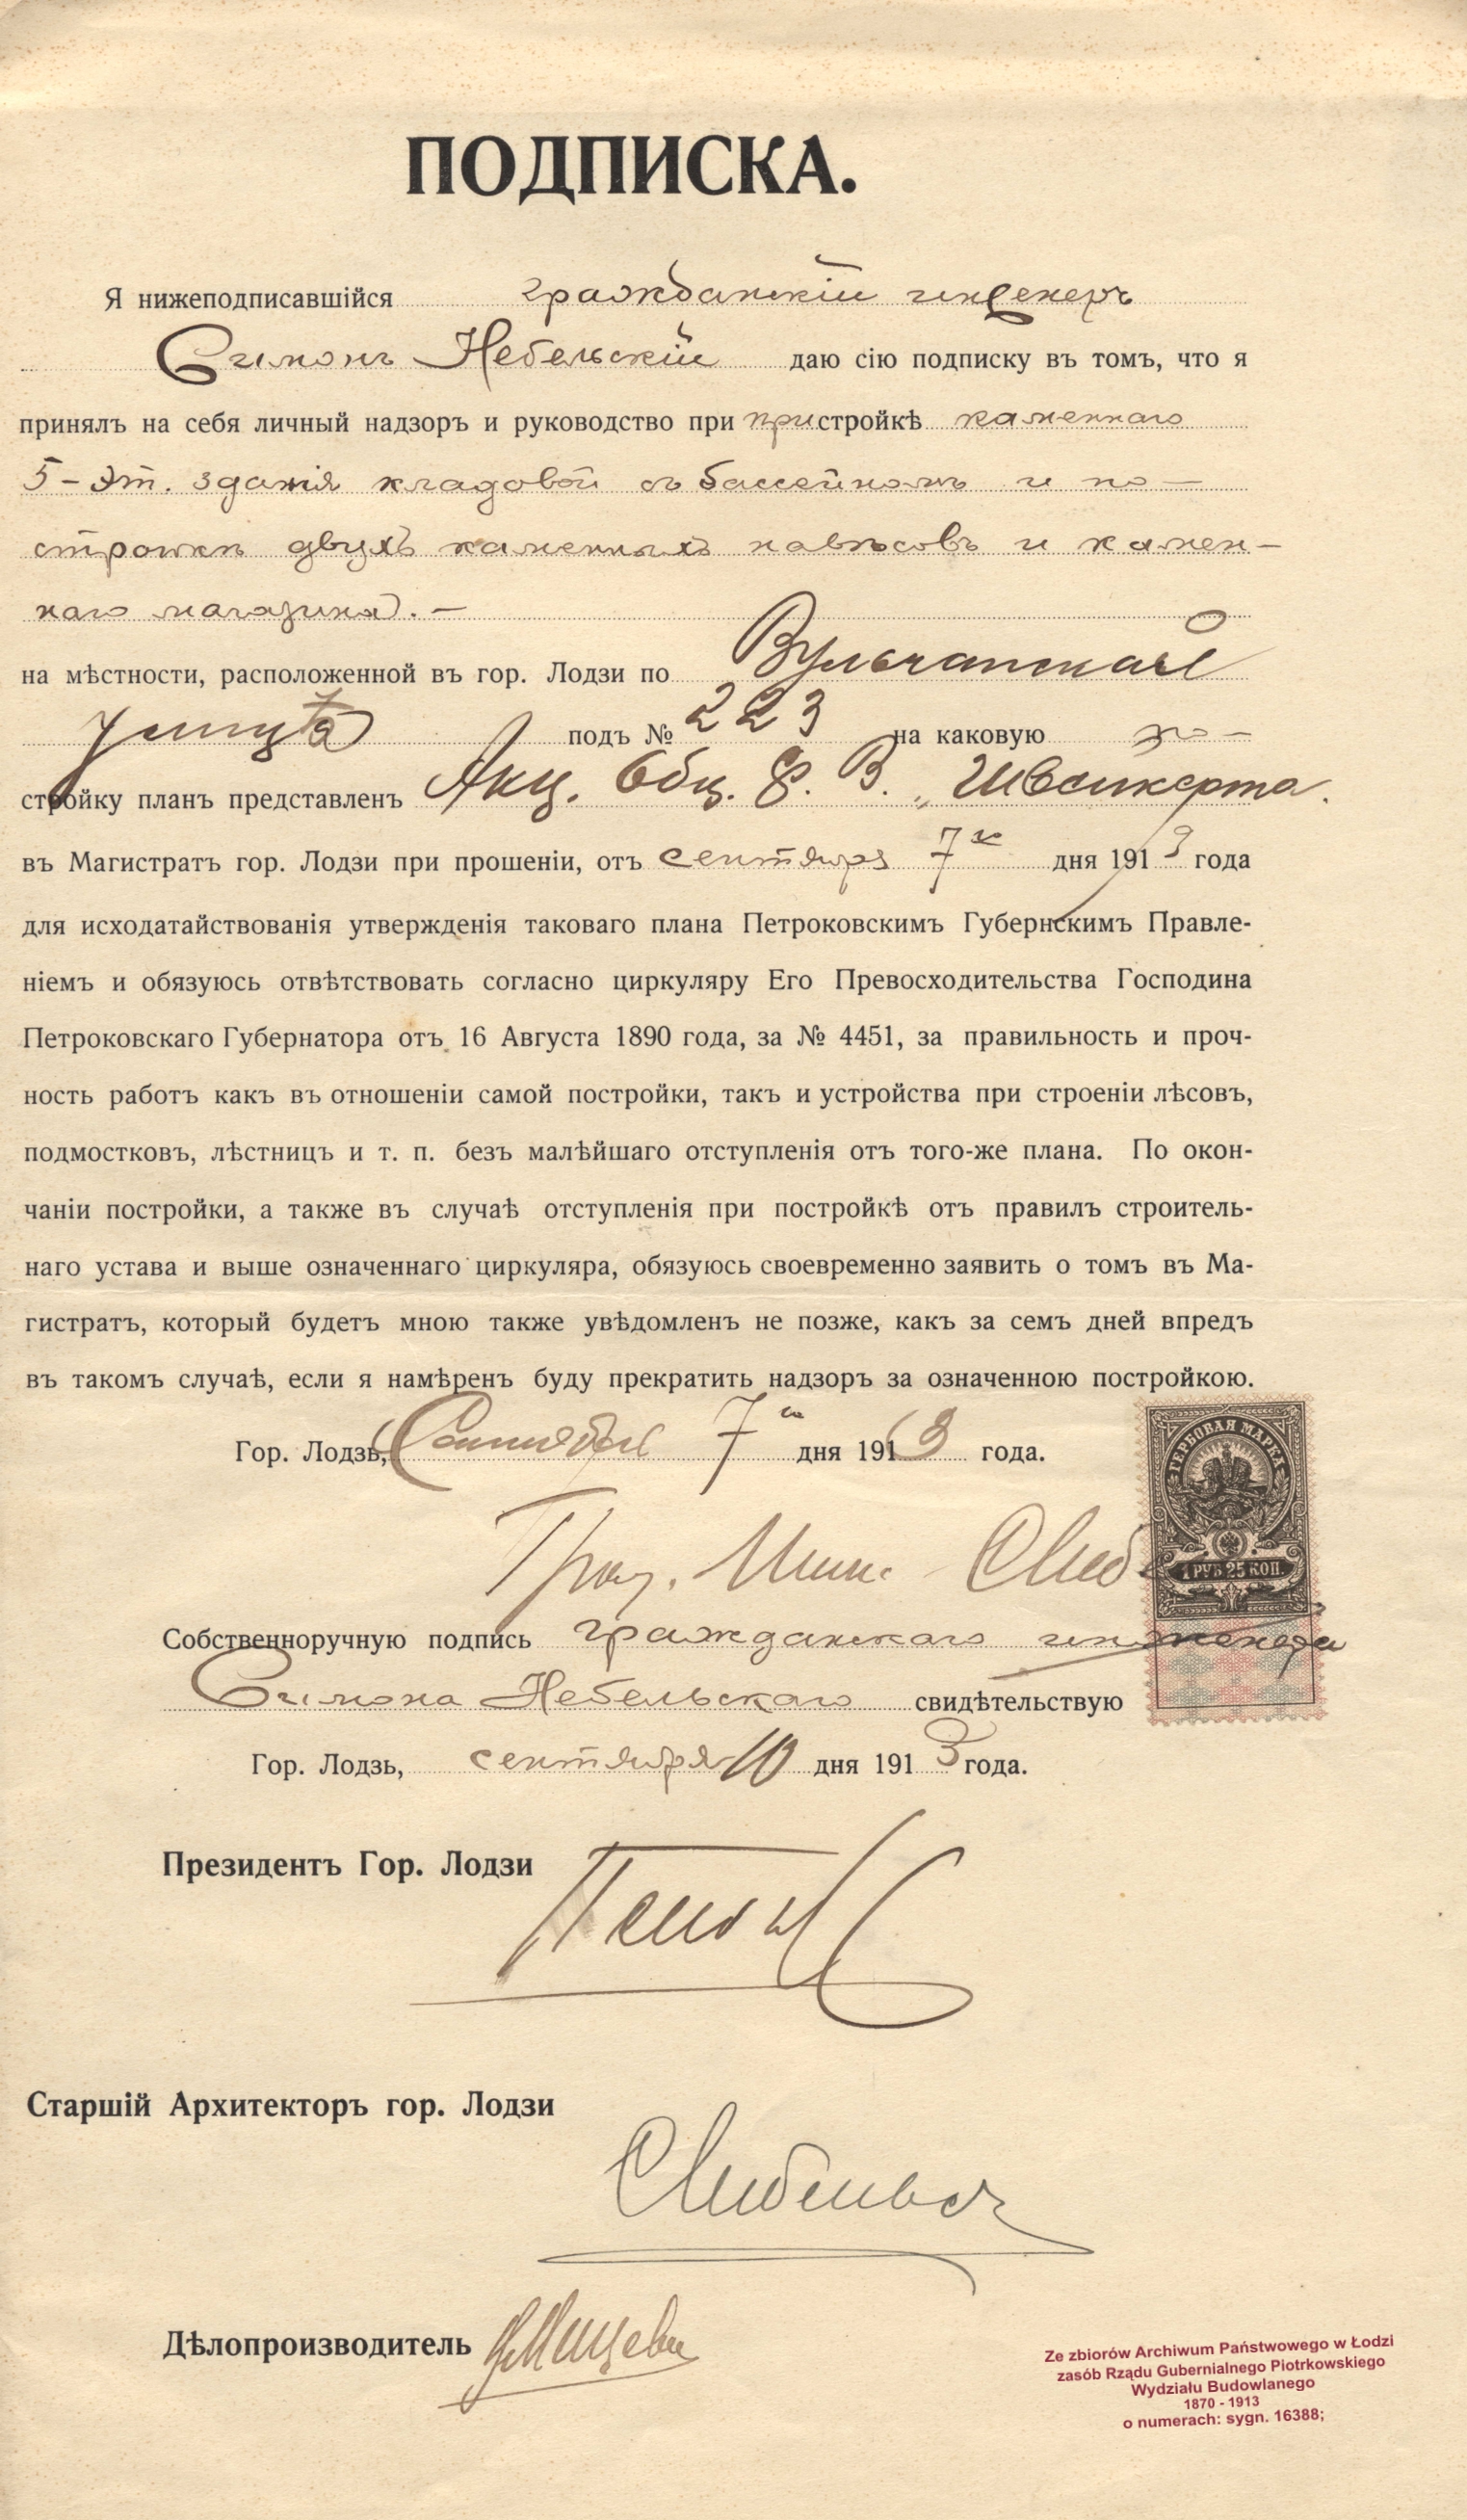 ПОДПИСКА.
Я нижеподписавшійся гражданскій инженеръ
Симонъ Небельскій даю сію подписку въ томъ, что я
принялъ на себя личный надзоръ и руководство при пристройкѣ каменнаго
5-эт. зданія кладовой съ бассейномъ и по-
стройкѣ двухъ каменныхъ навѣсовъ и камен-
наго магазина. —
на мѣстности, расположенной въ гор. Лодзи по Вульчанской
улицѣ подъ № 223 на каковую по-
стройку планъ представленъ Акц. Общ. Ф. В. Швейкерта.
въ Магистратъ гор. Лодзи при прошеніи, отъ сентября 7го дня 1913 года
для исходатайствованія утвержденія таковаго плана Петроковскимъ Губернскимъ Правле-
ніемъ и обязуюсь отвѣтствовать согласно циркуляру Его Превосходительства Господина
Петроковскаго Губернатора отъ 16 Августа 1890 года, за № 4451, за правильность и проч-
ность работъ какъ въ отношеніи самой постройки, такъ и устройства при строеніи лѣсовъ,
подмостковъ, лѣстницъ и т. п. безъ малѣйшаго отступленія отъ того-же плана. По окон-
чаніи постройки, а также въ случаѣ отступленія при постройкѣ отъ правилъ строитель-
наго устава и выше означеннаго циркуляра, обязуюсь своевременно заявить о томъ въ Ма-
гистратъ, который будетъ мною также увѣдомленъ не позже, какъ за семъ дней впредъ
въ такомъ случаѣ, если я намѣренъ буду прекратить надзоръ за означенною постройкою.
Гор. Лодзь, Сентября 7го дня 1913 года.
ГЕРБОВАЯ МАРКА
1 РУБ 25 КОП.
Граж. Инж.
Собственноручную подпись гражданскаго инженера
Симона Небельскаго свидѣтельствую
Гор. Лодзь, сентября 10 дня 1913 года.
Президентъ Гор. Лодзи
Старшій Архитекторъ гор. Лодзи
Дѣлопроизводитель
Ze zbiorów Archiwum Państwowego w Łodzi
zasób Rządu Gubernialnego Piotrkowskiego
Wydziału Budowlanego
1870 - 1913
o numerach: sygn. 16388;